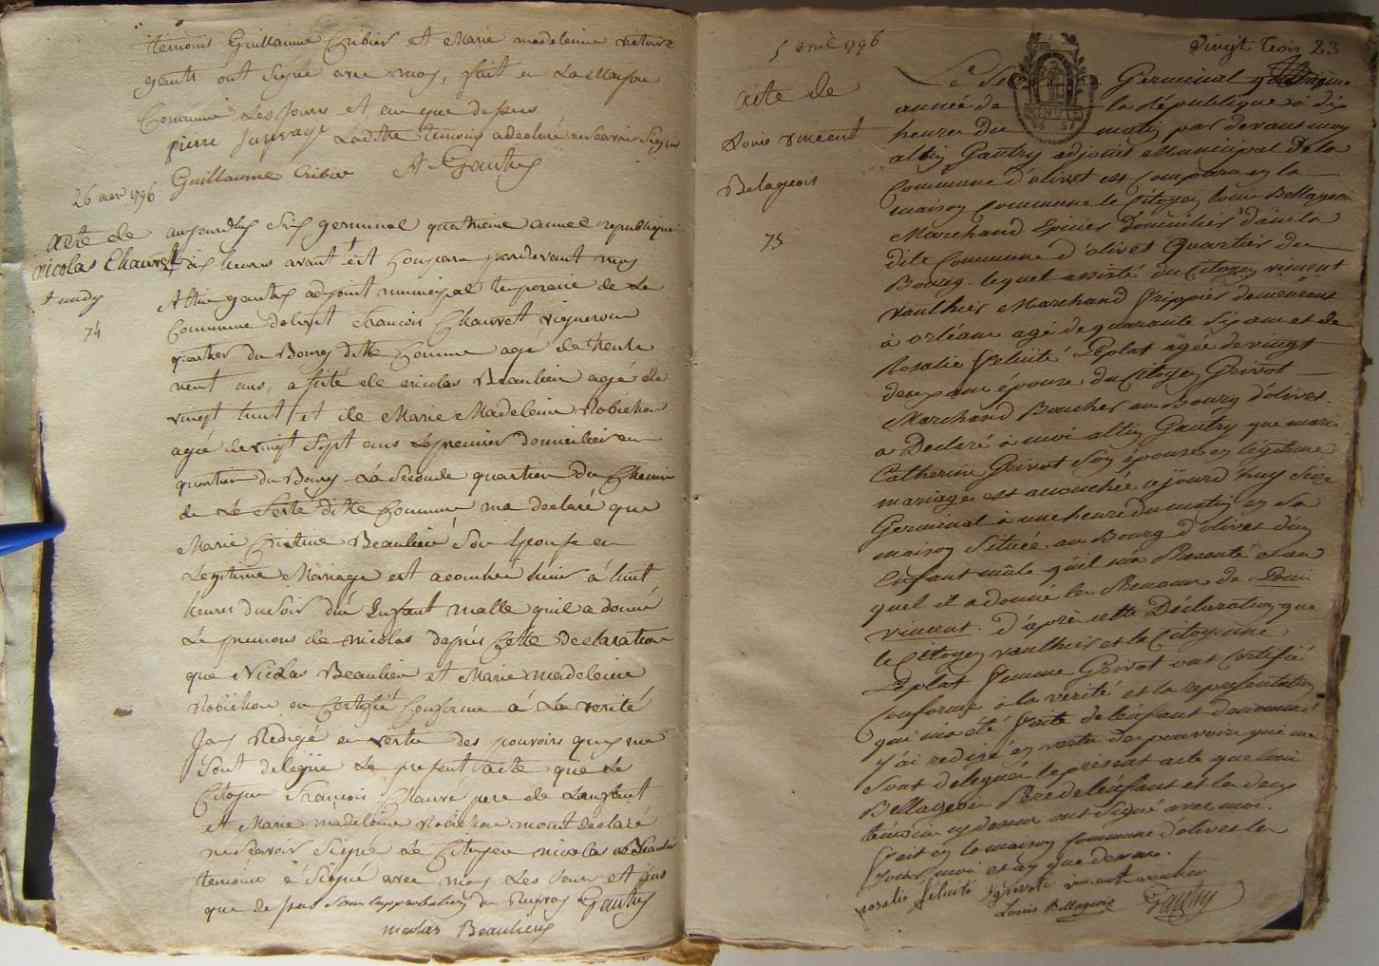 témoins Guillaume Cribier et Marie madeleine
gauts ont Signé avec moy, fait en La Maison
Commune Les Jours et an que dessus
pierre Sauvage Laditte temoins a declaré ne savoir Signer
Guillaume Cribier A Gautry
26 mars 1796
acte de
nicolas Chauvet
74
aujourdhuy Six germinal quatrieme année republiquaine
dix heures avant est Comparu pardevant moy
Altin gautry adjoint municipal temporaire de La
Commune dolivet francois Chauvet vigneron
quartier du Bourg ditte Commune agé de trente
neuf ans, assisté de nicolas Beaulieu agé de
vingt huit et de Marie Madeleine Robichon
agée de vingt Sept ans Le premier domicilié au
quartier du Bourg La Seconde quartier du Chemin
de La ferté ditte Commune ma declaré que
Marie Beaulieu Son Epouse en
Legitime Mariage est acouchée hier à huit
heures du Soir d'un Enfant malle quil a donné
Le prenoms de nicolas dapres Cette declaration
que Nicolas Beaulieu et Marie madeleine
Robichon on Certifié Conforme á La verité
Jay Redigé en vertu des pouvoirs quy me
Sont delegué Le present acte que Le
Citoyen François Chauve pere de Lenfant
et Marie madeleine Robichon mont declaré
ne Savoir Signé Le Citoyen nicolas Beaulieu
temoins a Signé avec moy Les Jour et an
que dessus Sans approbation du Gautry
nicolas Beaulieu
5 avril 1796
vingt trois 23
acte de
Louis vincent
Belageois
75
Le Germinal quatrieme
année de la République à dix
heures du matin par devant moy
altin Gautry adjoint Municipal de la
Commune d'olivet est comparu en la
maison Commune le Citoyen Louis Bellageoi
Marchand Epicier Domicilié dans la
dite Commune d'olivet Quartier du
Bourg. lequel assisté du Citoyen vincent
vauthier Marchand frippier demeurant
à orléans agé de quarante six ans et de
Rosalie félicité Leplat agée de vingt
deux ans épouse du Citoyen Goivot
Marchand Boucher au Bourg d'olivet
a Déclaré à moi altin Gautry que marie
Catherine Goivot Son épouse en légitime
mariage est accouchée ajourd'huy Seize
Germinal à une heure du matin en Sa
maison Située au Bourg d'olivet d'un
Enfant mâle qu'il m'a Presenté et au
quel il a donné les Prenoms de Louis
vincent. D'après cette Déclaration que
le Citoyen vauthier et la Citoyenne
Leplat femme Goivot ont certifié
conforme à la verité et la representation
qui m'a été faite de l'enfant denommé
j'ai redigé en vertu des pouvoirs qui me
Sont delegués le present acte que Louis
Bellageoi Père de l'enfant et les deux
temoins cy dessus ont Signé avec moi.
fait en la maison Commune d'olivet les
jour mois et an que dessus.
rosalie félicité vincent vautier
Louis Bellageois Gautry